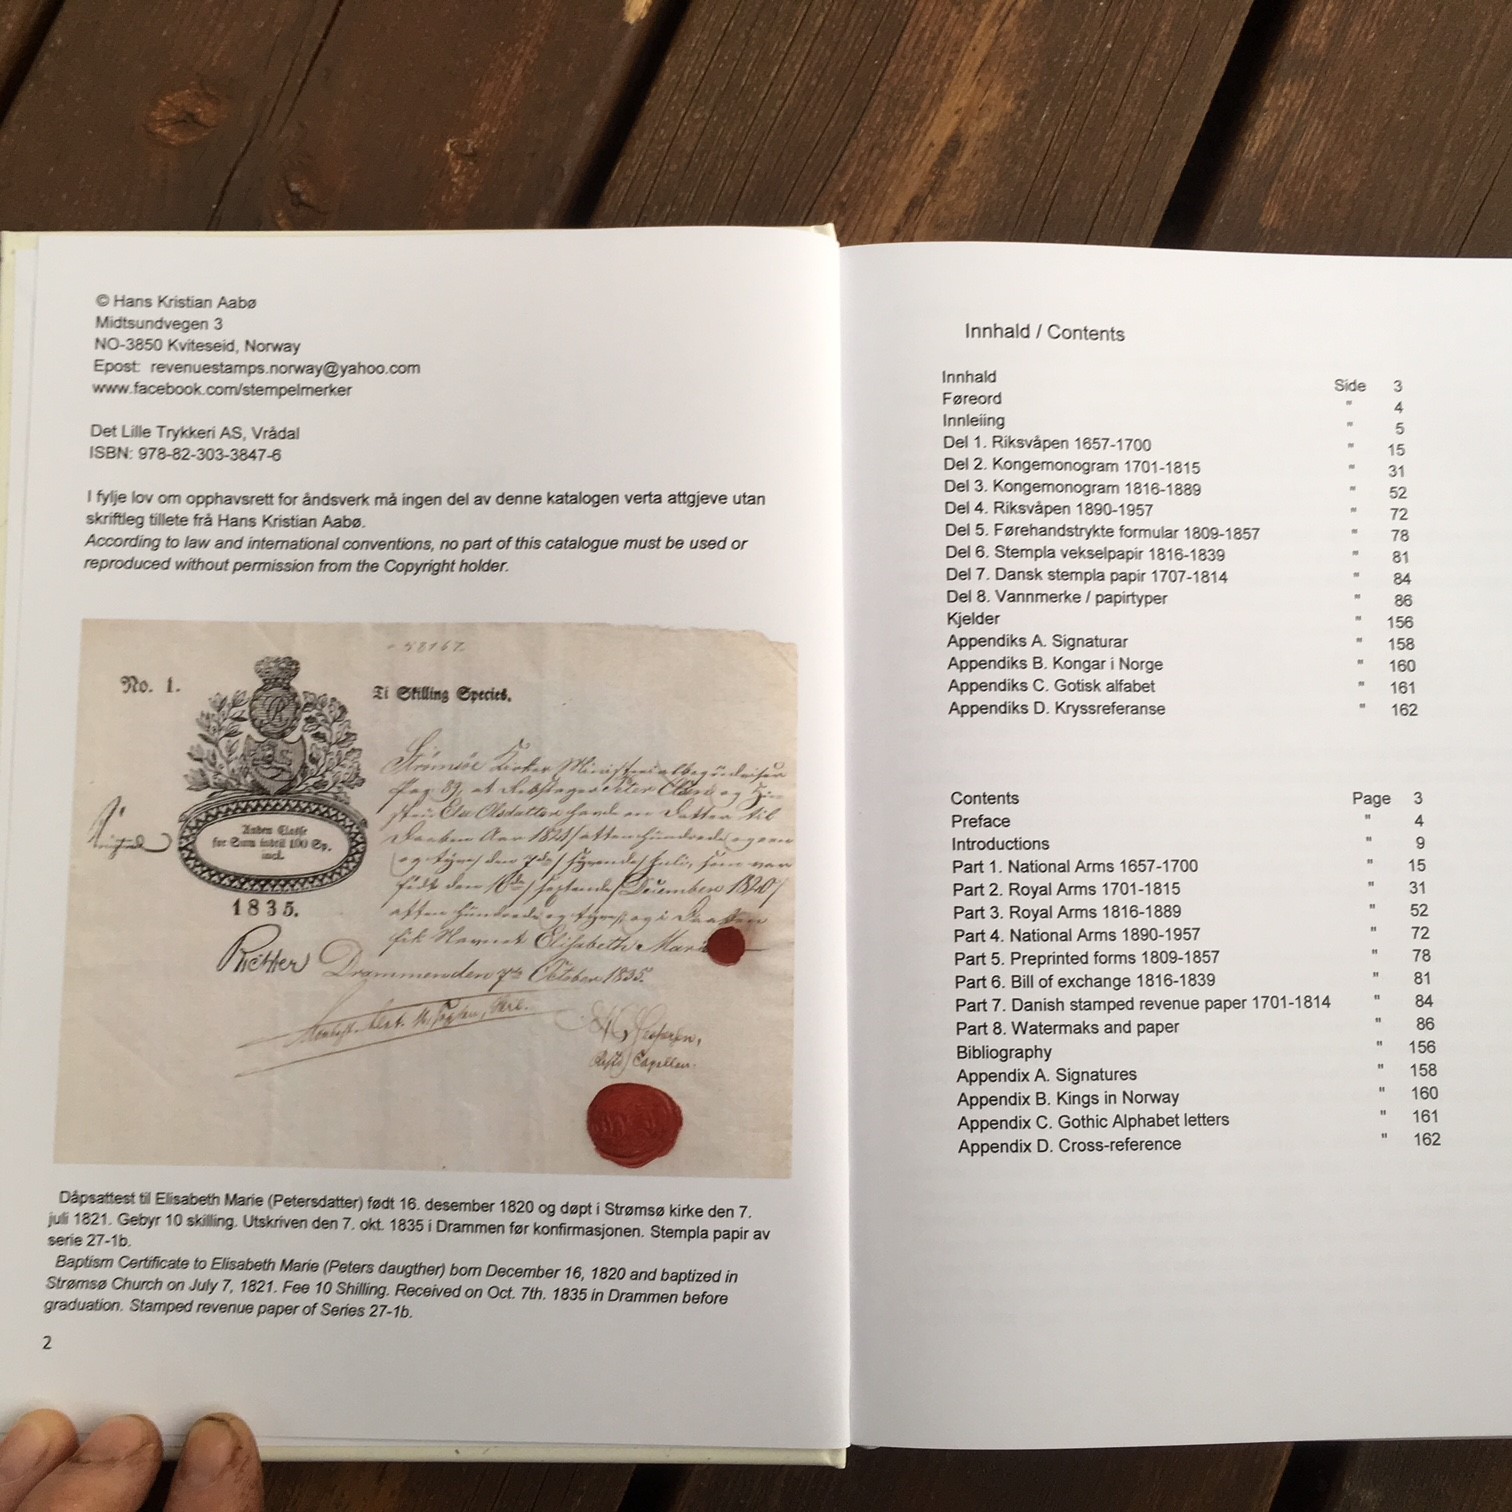 © Hans Kristian Aabø
Midtsundvegen 3
NO-3850 Kviteseid, Norway
Epost: revenuestamps.norway@yahoo.com
www.facebook.com/stempelmerker
Det Lille Trykkeri AS, Vrådal
ISBN: 978-82-303-3847-6
I fylje lov om opphavsrett for åndsverk må ingen del av denne katalogen verta attgjeve utan
skriftleg tillete frå Hans Kristian Aabø.
According to law and international conventions, no part of this catalogue must be used or
reproduced without permission from the Copyright holder.
No. 1.
Ti Skilling Species.
Anden Classe
for Sum indtil 100 Sp.
incl.
1835.
Richter
Strømsøe Kirkes
Elisabeth Maria
Drammen den 7de October 1835.
Dåpsattest til Elisabeth Marie (Petersdatter) født 16. desember 1820 og døpt i Strømsø kirke den 7.
juli 1821. Gebyr 10 skilling. Utskriven den 7. okt. 1835 i Drammen før konfirmasjonen. Stempla papir av
serie 27-1b.
Baptism Certificate to Elisabeth Marie (Peters daugther) born December 16, 1820 and baptized in
Strømsø Church on July 7, 1821. Fee 10 Shilling. Received on Oct. 7th. 1835 in Drammen before
graduation. Stamped revenue paper of Series 27-1b.
2
Innhald / Contents
Innhald Side 3
Føreord " 4
Innleiing " 5
Del 1. Riksvåpen 1657-1700 " 15
Del 2. Kongemonogram 1701-1815 " 31
Del 3. Kongemonogram 1816-1889 " 52
Del 4. Riksvåpen 1890-1957 " 72
Del 5. Førehandstrykte formular 1809-1857 " 78
Del 6. Stempla vekselpapir 1816-1839 " 81
Del 7. Dansk stempla papir 1707-1814 " 84
Del 8. Vannmerke / papirtyper " 86
Kjelder " 156
Appendiks A. Signaturar " 158
Appendiks B. Kongar i Norge " 160
Appendiks C. Gotisk alfabet " 161
Appendiks D. Kryssreferanse " 162
Contents Page 3
Preface " 4
Introductions " 9
Part 1. National Arms 1657-1700 " 15
Part 2. Royal Arms 1701-1815 " 31
Part 3. Royal Arms 1816-1889 " 52
Part 4. National Arms 1890-1957 " 72
Part 5. Preprinted forms 1809-1857 " 78
Part 6. Bill of exchange 1816-1839 " 81
Part 7. Danish stamped revenue paper 1701-1814 " 84
Part 8. Watermaks and paper " 86
Bibliography " 156
Appendix A. Signatures " 158
Appendix B. Kings in Norway " 160
Appendix C. Gothic Alphabet letters " 161
Appendix D. Cross-reference " 162